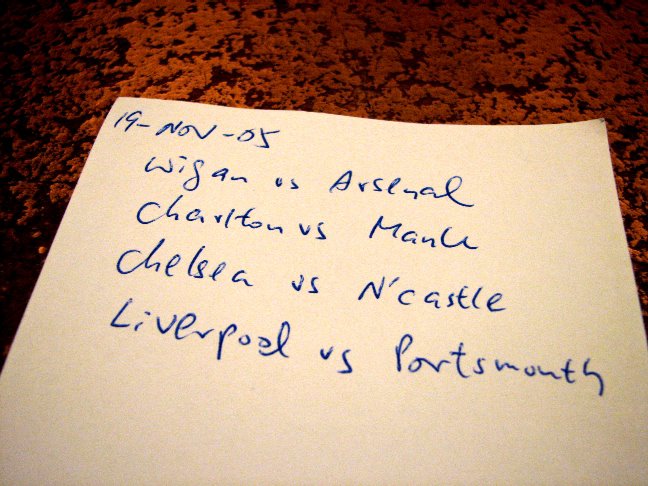 19-NOV-05
Wigan vs Arsenal
Charlton vs ManU
Chelsea vs N'castle
Liverpool vs Portsmouth